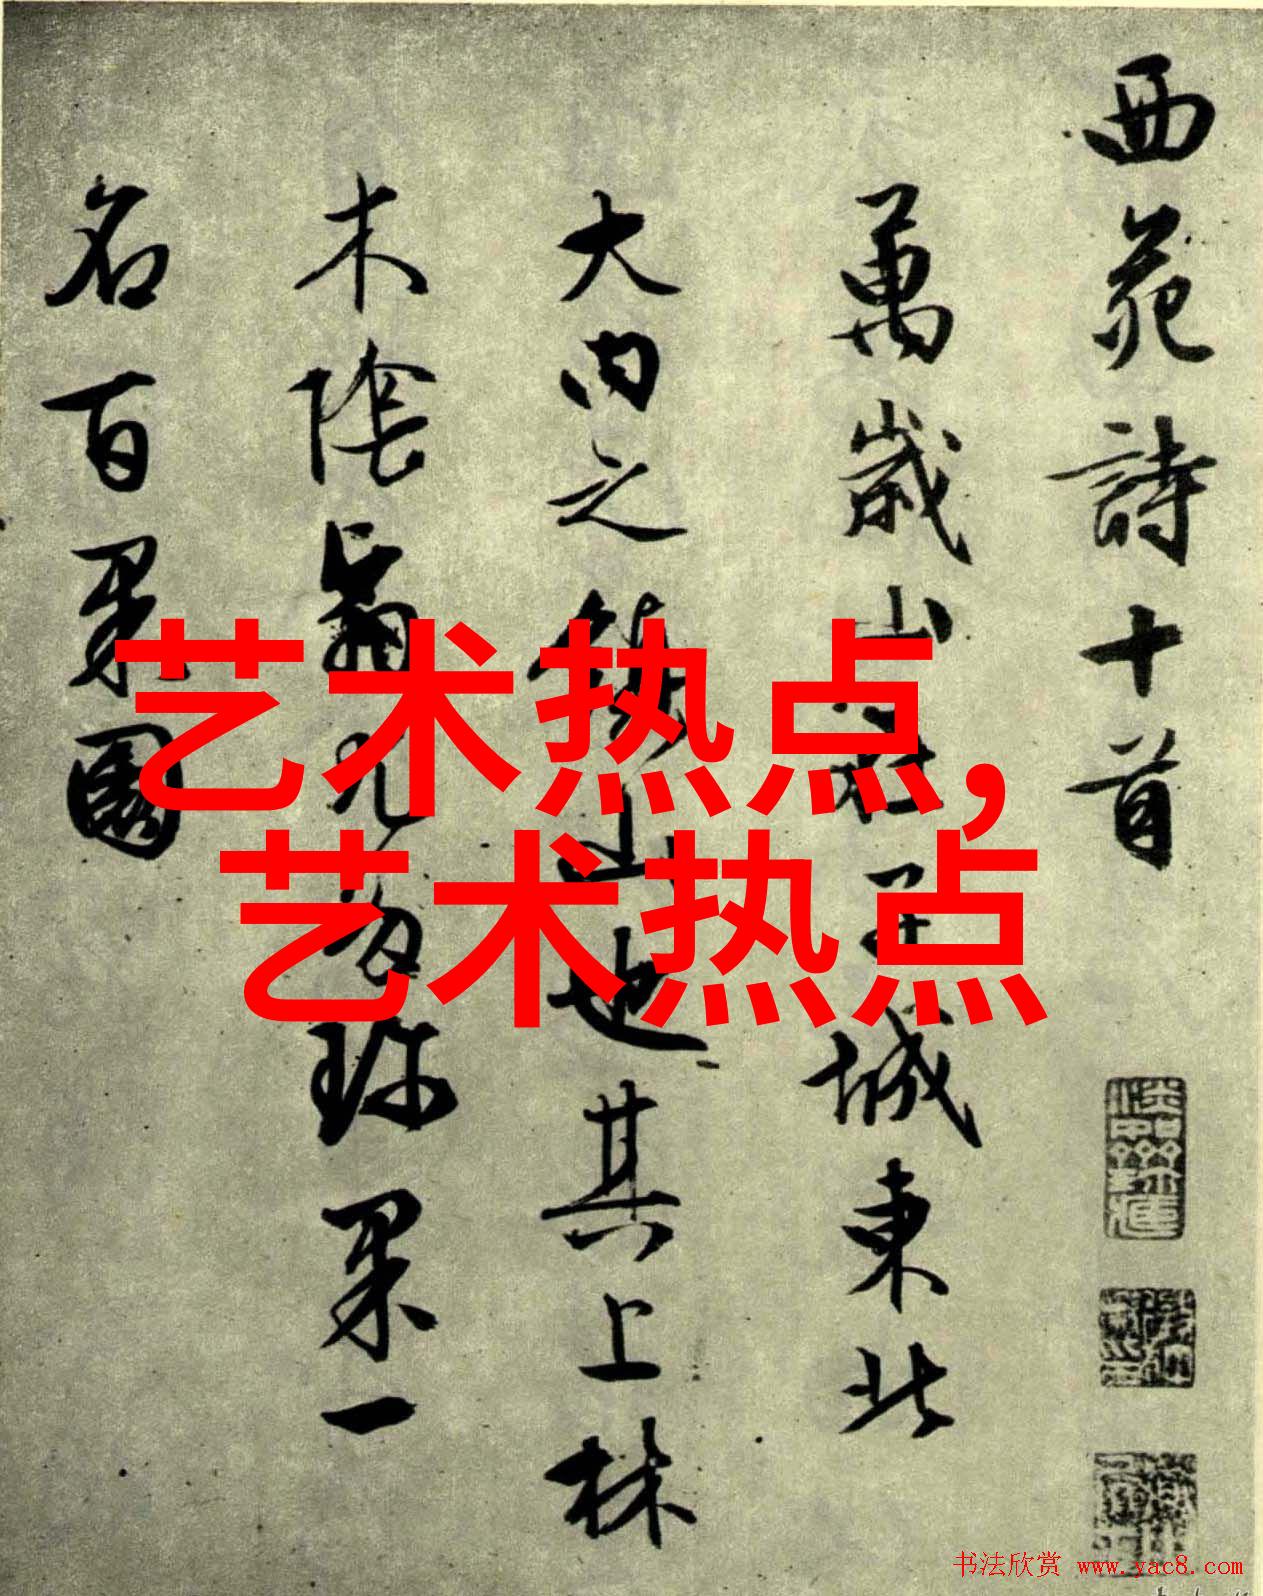 西苑詩十首
萬歲山在子城東北
大内之鎮山也其上林
木陰翳尤多珍果一
名百果園
艺术热点,
艺术热点
书法欣赏 www.yac8.com